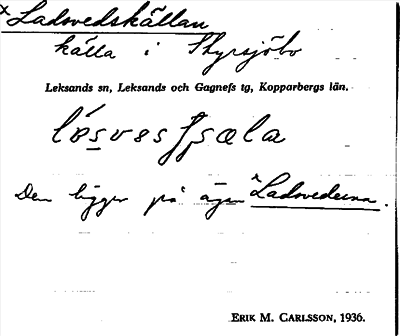 x Ladsvedskällan
källa i Styrsjöbo
Leksands sn, Leksands och Gagnefs tg, Kopparbergs län.
Den ligger på ägan Ladsvederna.
ERIK M. CARLSSON, 1936.